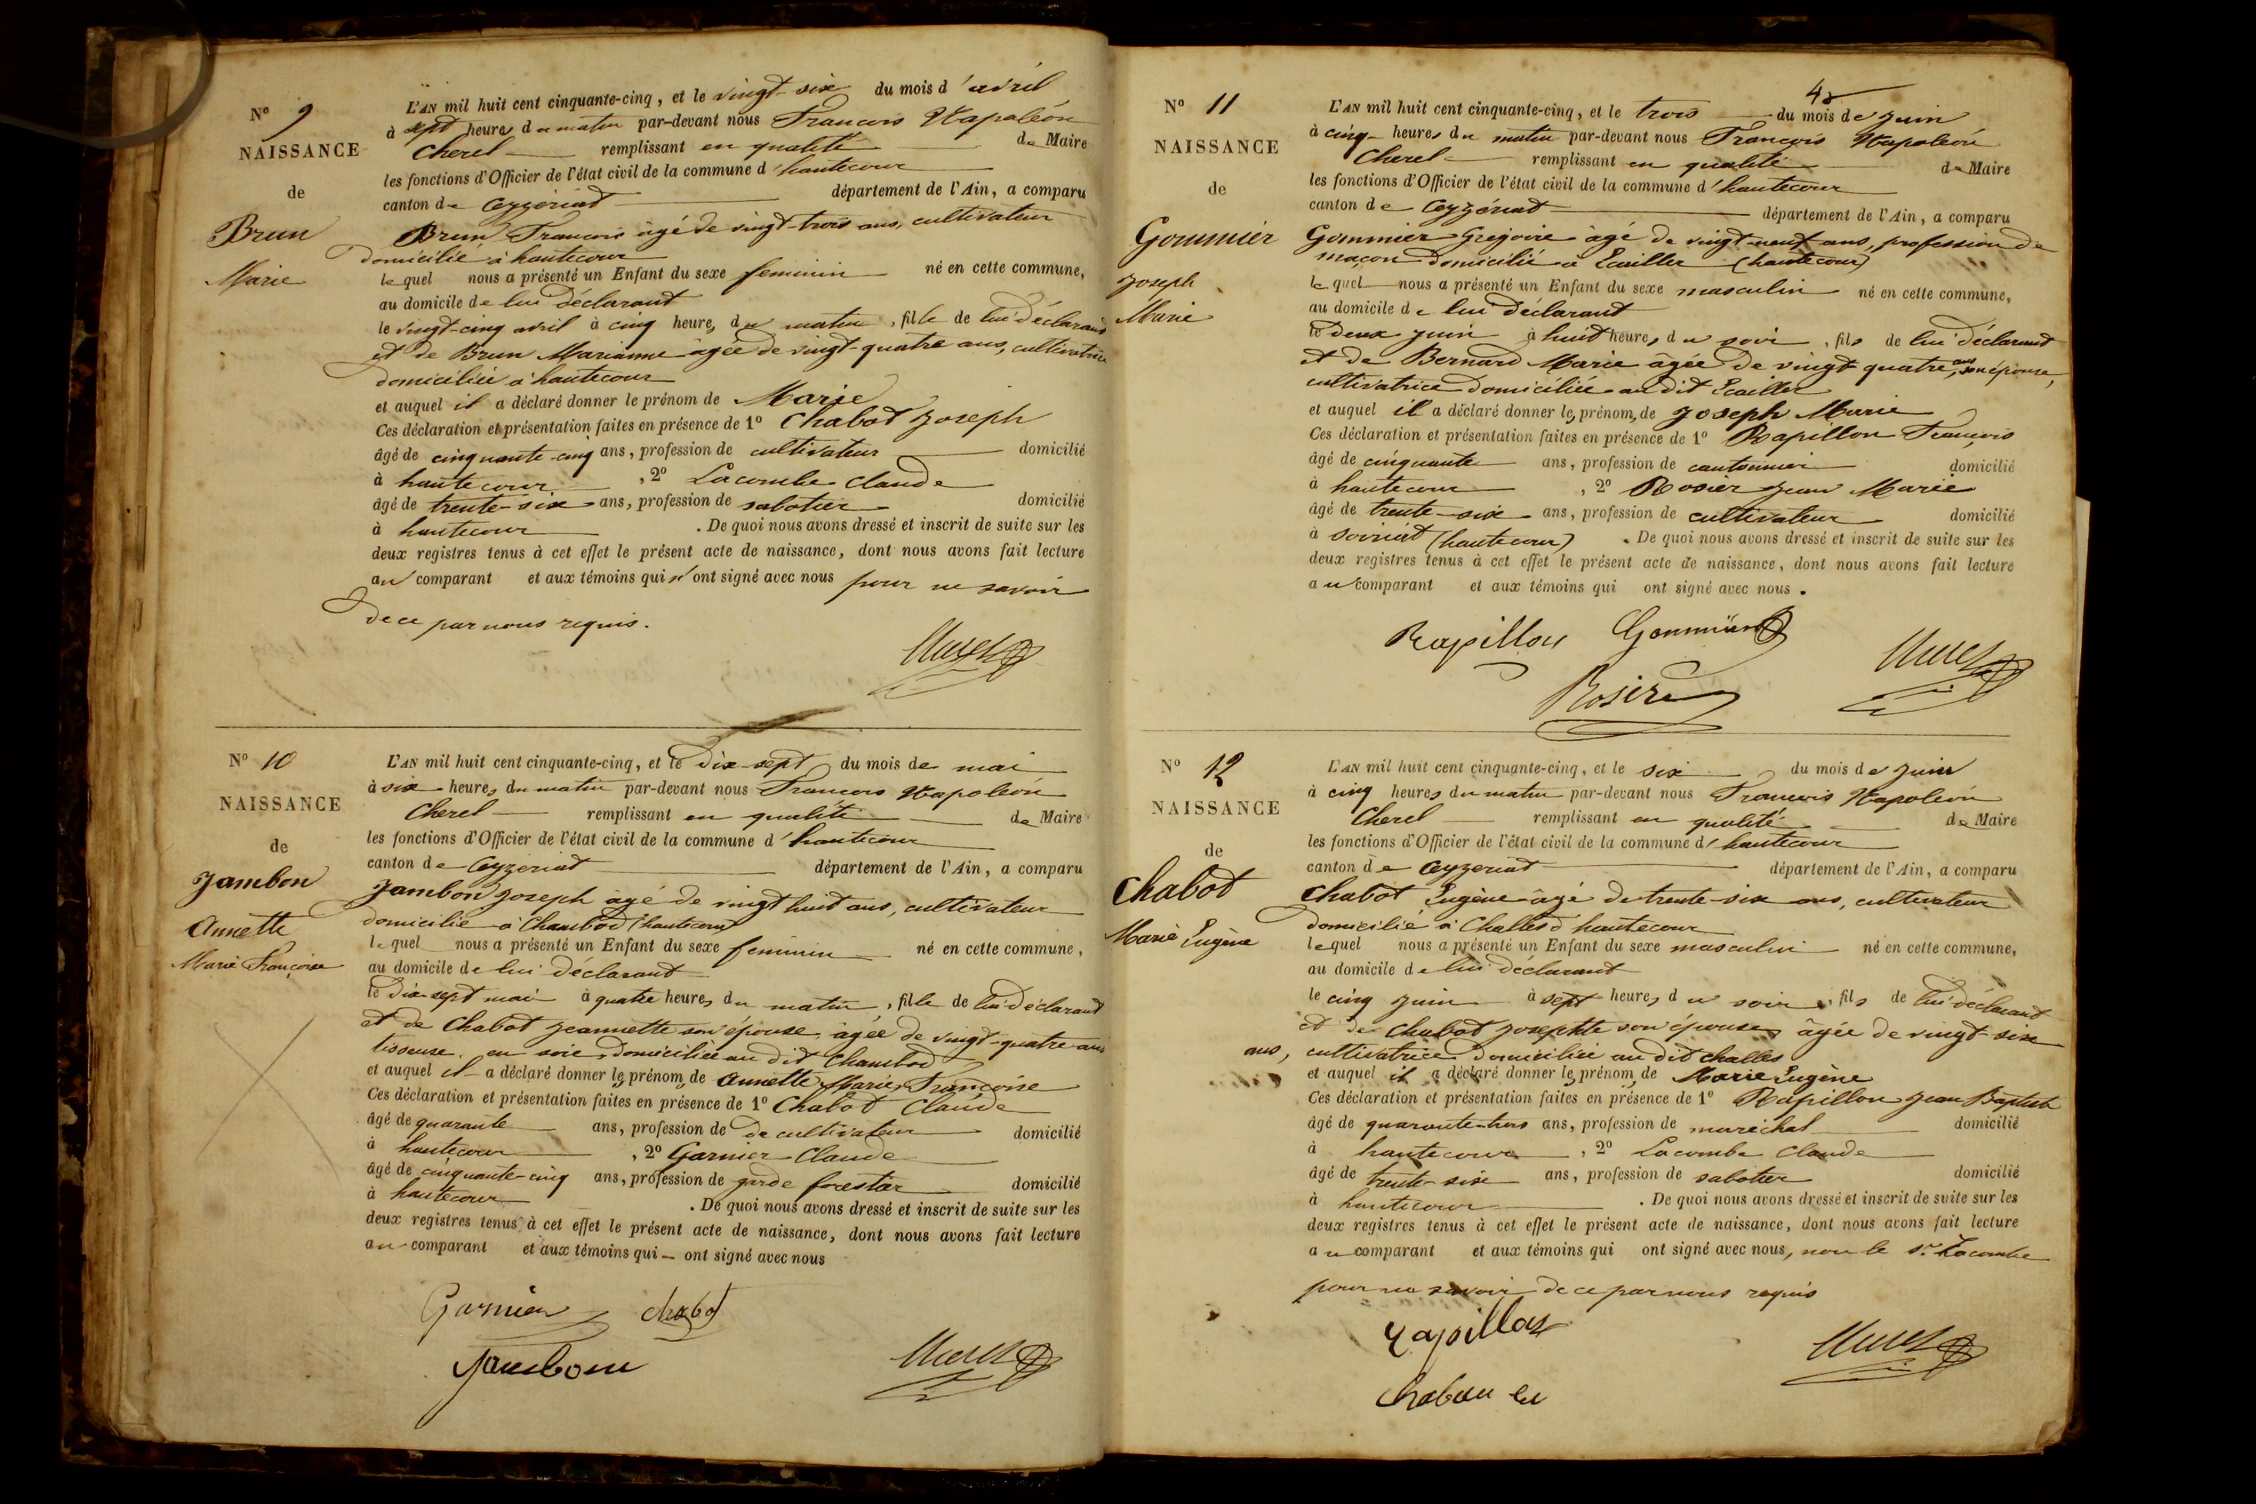 N° 9
NAISSANCE
de
Brun
Marie
L'AN mil huit cent cinquante-cinq, et le vingt-six du mois d'avril
à sept heures du matin par-devant nous François Napoléon
Cherel remplissant en qualité de Maire
les fonctions d'Officier de l'état civil de la commune d'hautecour
canton de Ceyzeriat département de l'Ain, a comparu
Brun François âgé de vingt-trois ans, cultivateur
domicilié à hautecour
lequel nous a présenté un Enfant du sexe feminin né en cette commune,
au domicile de lui déclarant
le vingt-cinq avril à cinq heures du matin, fille de lui déclarant
et de Brun Marianne âgée de vingt-quatre ans, cultivatrice
domiciliée à hautecour
et auquel il a déclaré donner le prénom de Marie
Ces déclaration et présentation faites en présence de 1° Chabot Joseph
âgé de cinquante-cinq ans, profession de cultivateur domicilié
à hautecour, 2° Lacombe Claude
âgé de trente-six ans, profession de sabotier domicilié
à hautecour. De quoi nous avons dressé et inscrit de suite sur les
deux registres tenus à cet effet le présent acte de naissance, dont nous avons fait lecture
au comparant et aux témoins qui n'ont signé avec nous pour ne savoir
de ce par nous requis.
N° 10
NAISSANCE
de
Jambon
Annette
Marie Françoise
L'AN mil huit cent cinquante-cinq, et le dix-sept du mois de mai
à six heures du matin par-devant nous François Napoléon
Cherel remplissant en qualité de Maire
les fonctions d'Officier de l'état civil de la commune d'hautecour
canton de Ceyzeriat département de l'Ain, a comparu
Jambon Joseph âgé de vingt huit ans, cultivateur
domicilié à Chambod (hautecour)
lequel nous a présenté un Enfant du sexe feminin né en cette commune,
au domicile de lui déclarant
le dix-sept mai à quatre heures du matin, fille de lui déclarant
et de Chabot Jeannette son épouse âgée de vingt-quatre ans
tisseuse en soie domiciliée au dit Chambod
et auquel il a déclaré donner les prénoms de Annette Marie Françoise
Ces déclaration et présentation faites en présence de 1° Chabot Claude
âgé de quarante ans, profession de de cultivateur domicilié
à hautecour, 2° Garnier Claude
âgé de cinquante-cinq ans, profession de garde forestier domicilié
à hautecour. De quoi nous avons dressé et inscrit de suite sur les
deux registres tenus à cet effet le présent acte de naissance, dont nous avons fait lecture
au comparant et aux témoins qui ont signé avec nous
Garnier chabot
Jambon
48
N° 11
NAISSANCE
de
Gommier
Joseph
Marie
L'AN mil huit cent cinquante-cinq, et le trois du mois de juin
à cinq heures du matin par-devant nous François Napoléon
Cherel remplissant en qualité de Maire
les fonctions d'Officier de l'état civil de la commune d'hautecour
canton de Ceyzériat département de l'Ain, a comparu
Gommier Grégoire âgé de vingt-neuf ans, profession de
maçon domicilié à Ecailler (hautecour)
lequel nous a présenté un Enfant du sexe masculin né en cette commune,
au domicile de lui déclarant
le deux juin à huit heures du soir, fils de lui déclarant
et de Bernard Marie âgée de vingt quatre ans, son épouse,
cultivatrice domiciliée au dit Ecailler
et auquel il a déclaré donner les prénoms de Joseph Marie
Ces déclaration et présentation faites en présence de 1° Rapillon François
âgé de cinquante ans, profession de cantonnier domicilié
à hautecour, 2° Rosier Jean Marie
âgé de trente-six ans, profession de cultivateur domicilié
à Soiriat (hautecour). De quoi nous avons dressé et inscrit de suite sur les
deux registres tenus à cet effet le présent acte de naissance, dont nous avons fait lecture
au comparant et aux témoins qui ont signé avec nous.
Rapillon Gommier
N° 12
NAISSANCE
de
Chabot
Marie Eugène
L'AN mil huit cent cinquante-cinq, et le six du mois de juin
à cinq heures du matin par-devant nous François Napoléon
Cherel remplissant en qualité de Maire
les fonctions d'Officier de l'état civil de la commune d'hautecour
canton de Ceyzeriat département de l'Ain, a comparu
Chabot Eugène âgé de trente-six ans, cultivateur
domicilié à Challes d'hautecour
lequel nous a présenté un Enfant du sexe masculin né en cette commune,
au domicile de lui déclarant
le cinq juin à sept heures du soir, fils de lui déclarant
et de Chabot Josephte son épouse, âgée de vingt-six
ans, cultivatrice domiciliée au dit challes
et auquel il a déclaré donner les prénoms de Marie Eugène
Ces déclaration et présentation faites en présence de 1° Rapillon Jean Baptiste
âgé de quarante-trois ans, profession de maréchal domicilié
à hautecour, 2° Lacombe Claude
âgé de trente-six ans, profession de sabotier domicilié
à hautecour. De quoi nous avons dressé et inscrit de suite sur les
deux registres tenus à cet effet le présent acte de naissance, dont nous avons fait lecture
au comparant et aux témoins qui ont signé avec nous, non le Sr. Lacombe
pour ne savoir de ce par nous requis
rapillon